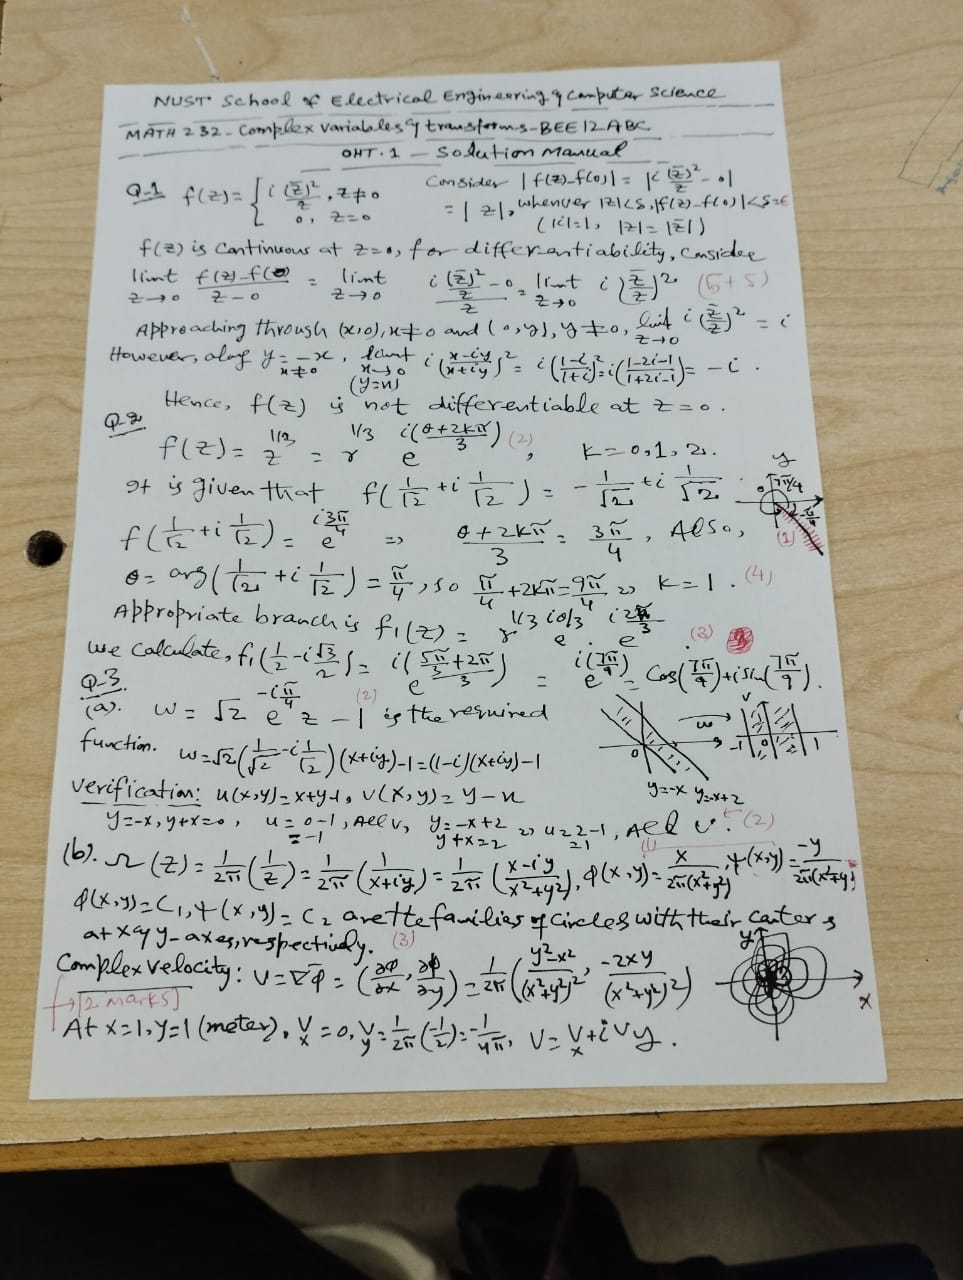 NUST School of Electrical Engineering & Computer Science
MATH 232 - Complex Variables & transforms - BEE 12 ABC
OHT-1 - Solution Manual
Q-1 f(z) = { i (z̄)²/z, z≠0
0, z=0
Consider |f(z)-f(0)| = |i (z̄)²/z - 0|
= |z|, whenever |z|<δ, |f(z)-f(0)|<δ=ε
(|i|=1, |z|=|z̄|)
f(z) is continuous at z=0, for differentiability, consider
limt z→0 f(z)-f(0)/z-0 = limt z→0 i (z̄)²/z - 0/z = limt z→0 i (z̄/z)² (5+5)
Approaching through (x,0), x≠0 and (0,y), y≠0, limt z→0 i (z̄/z)² = i
However, along y=-x, x≠0 limt x→0 (y=x) i (x-iy/x+iy)² = i (1-i/1+i)² = i (1-2i-1/1+2i-1) = -i.
Hence, f(z) is not differentiable at z=0.
Q-2
f(z) = z^1/3 = r^1/3 e^i(θ+2kπ/3) (2), k=0,1,2.
It is given that f(1/√2 + i 1/√2) = -1/√2 + i 1/√2.
f(1/√2 + i 1/√2) = e^i3π/4 => θ+2kπ/3 = 3π/4, Also,
θ = arg(1/√2 + i 1/√2) = π/4, so π/4 + 2kπ = 9π/4 => k=1. (4)
y
0 7π/4
(1)
Appropriate branch is f₁(z) = r^1/3 e^iθ/3 . e^i2π/3 (3)
We calculate, f₁(1/2 - i√3/2) = e^i(5π/3+2π/3) = e^i(7π/9) = cos(7π/9)+i sin(7π/9).
Q-3
(a). w = √2 e^-iπ/4 z - 1 is the required (2)
function. w=√2(1/√2 - i 1/√2)(x+iy)-1=(1-i)(x+iy)-1
Verification: u(x,y)=x+y-1, v(x,y)=y-x
0 w v -1 0 1
y=-x y=-x+2
y=-x, y+x=0, u=0-1, All v, y=-x+2 => u=2-1, All v. (2)
=-1 y+x=2 =1
(1)
(b). Ω(z) = 1/2π (1/z) = 1/2π (1/x+iy) = 1/2π (x-iy/x²+y²), φ(x,y)= x/2π(x²+y²), ψ(x,y)= -y/2π(x²+y²)
φ(x,y)=C₁, ψ(x,y)=C₂ are the families of circles with their centers
at x & y-axes, respectively. (3)
Complex velocity: V = ∇Φ = (∂Φ/∂x, ∂Φ/∂y) = 1/2π (y²-x²/(x²+y²)², -2xy/(x²+y²)²)
[2 marks]
y x
At x=1, y=1 (meter), Vx=0, Vy = 1/2π (-1/2) = -1/4π, V = Vx+iVy.